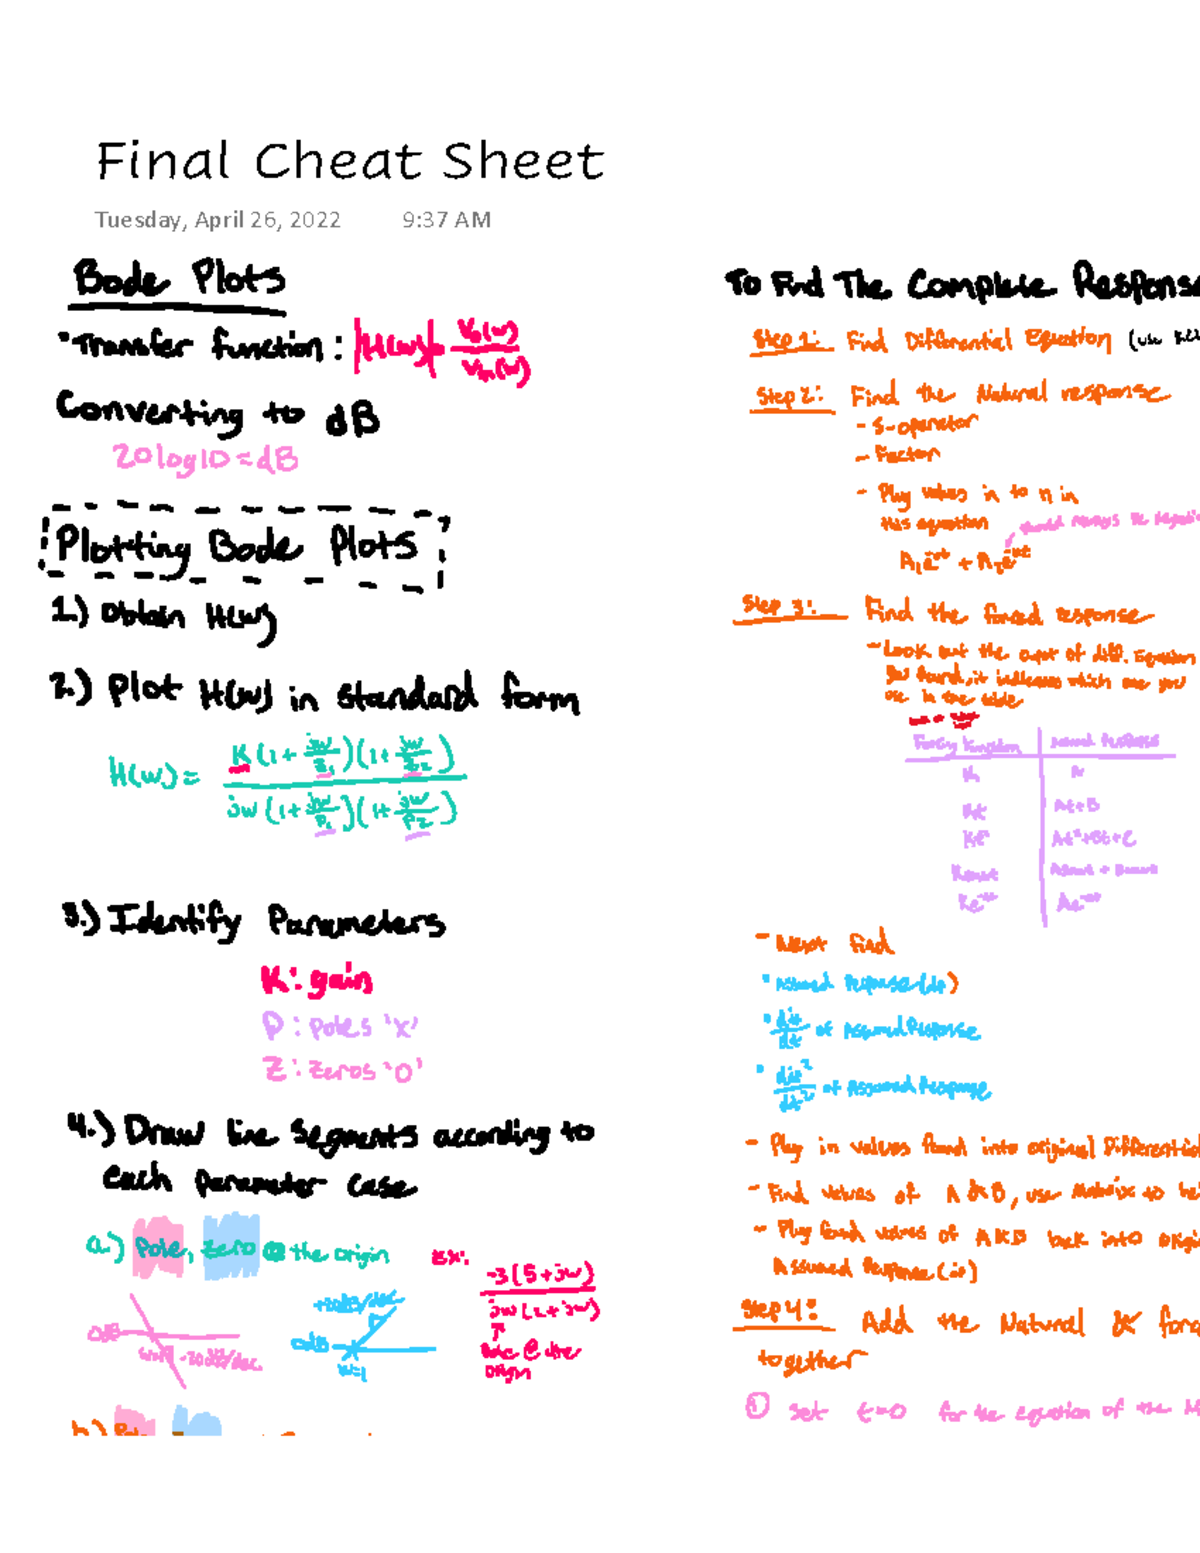 Final Cheat Sheet
Tuesday, April 26, 2022 9:37 AM
Bode Plots
•Transfer function: |H(w)|= Vo(w)/Vin(w)
Converting to dB
20log10=dB
Plotting Bode Plots
1.) Obtain H(w)
2.) Plot H(w) in standard form
H(w)= K(1+jw/z1)(1+jw/z2) / jw(1+jw/p1)(1+jw/p2)
3.) Identify Parameters
K: gain
P: Poles 'X'
Z: Zeros 'O'
4.) Draw line segments according to
each parameter case
a.) Pole, Zero @ the origin
Ex:
-3(5+jw)
jw(2+jw)
↑
Pole @ the
origin
0dB
w=1 -20dB/dec.
+20dB/dec
0dB
w=1
b.)
To Find The Complete Response
Step 1: Find Differential Equation (use
Step 2: Find the Natural response
- S-operator
- Factor
- Plug values in to n in
this equation
should always be
A1e^-nt + A2e^-nt
Step 3: Find the forced response
- Look out the of diff. Equation
you found, it indicates which one you
use in the table
K A
Kt At+B
Kt² At²+Bt+C
Ke^-at Ae^-at
- Next find
• Assumed Response
• of Assumed Response
• of Assumed Response
- Plug in values found into original Differential
- Find values of A & B, use Matrix to
- Plug found values of A & B back into
Assumed Response
Step 4: Add the Natural &
together
① set t=0 for the equation of the